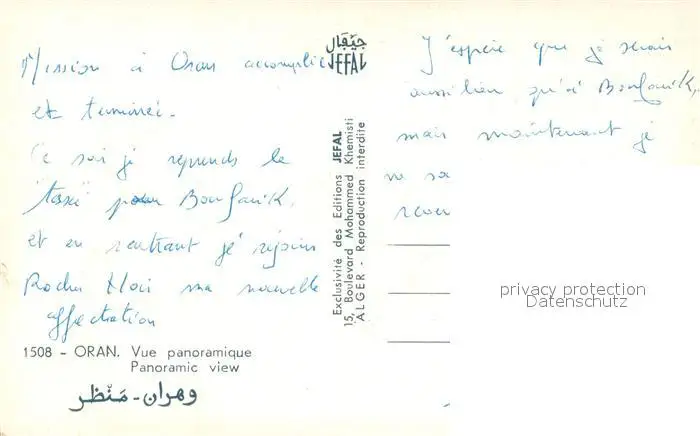 Mission à Oran accomplie
et terminée.
Ce soir je reprends le
pour Boufarik,
et en rentrant je rejoins
Rocher Noir ma nouvelle
affectation
1508 - ORAN. Vue panoramique
Panoramic view
وهران - مَنْظر
جيفَال
JEFAL
Exclusivité des Editions JEFAL
15, Boulevard Mohammed Khemisti
ALGER - Reproduction interdite
J'espère que je serais
aussi bien qu'à Boufarik,
mais maintenant je
ne sa
privacy protection
Datenschutz